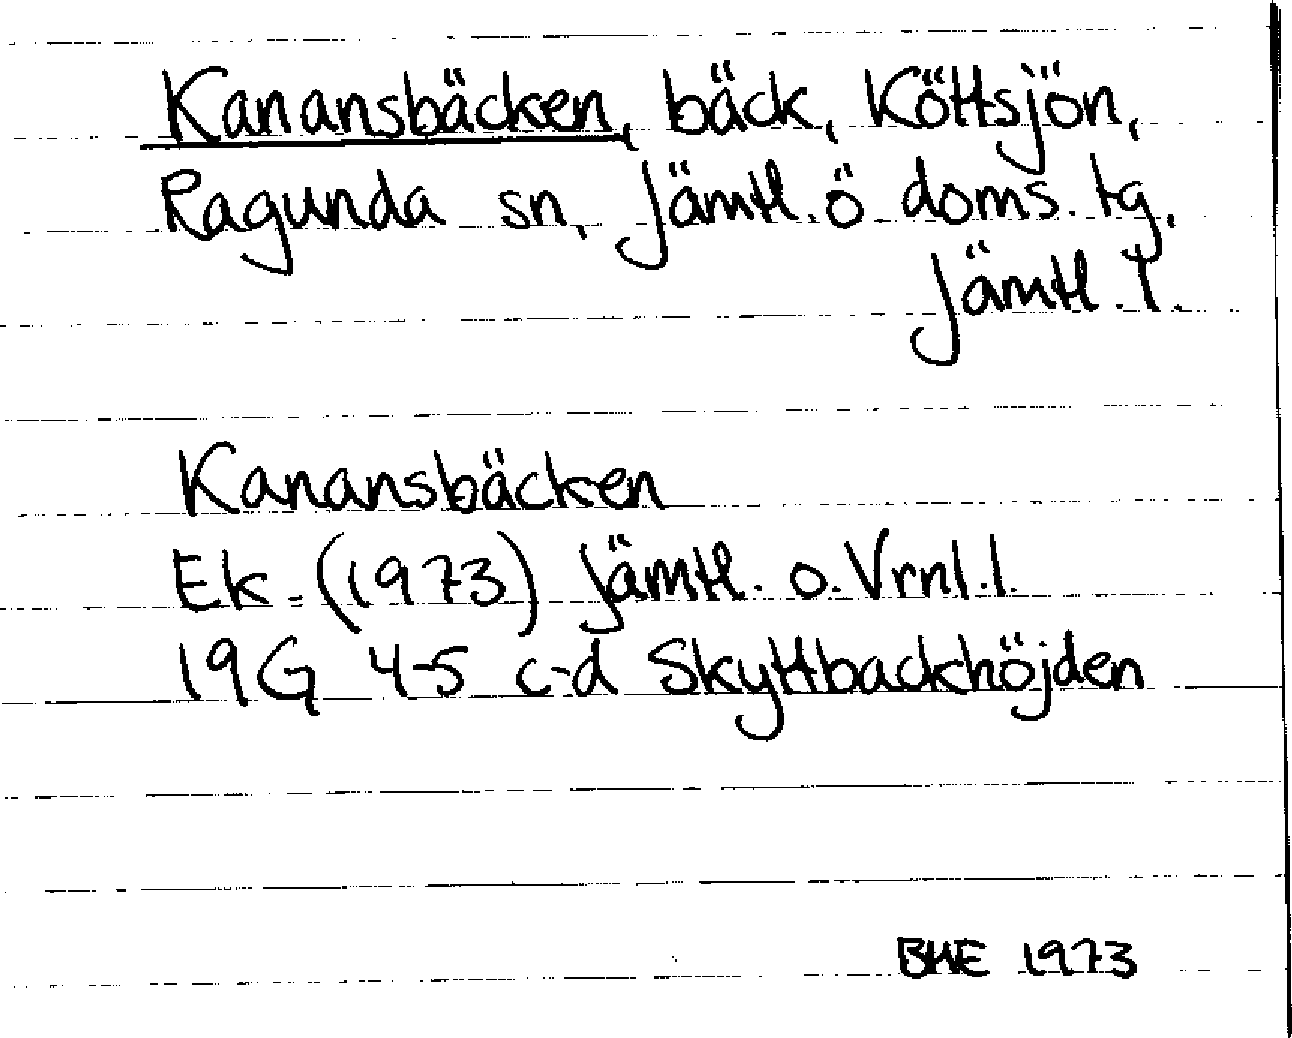 Kanansbäcken, bäck, Köttsjön,
Ragunda sn, Jämtl. ö doms. tg,
Jämtl. l.
Kanansbäcken
Ek. (1973) Jämtl. o. Vrnl. l.
19G 4-5 c-d Skyttbackhöjden
BHE 1973